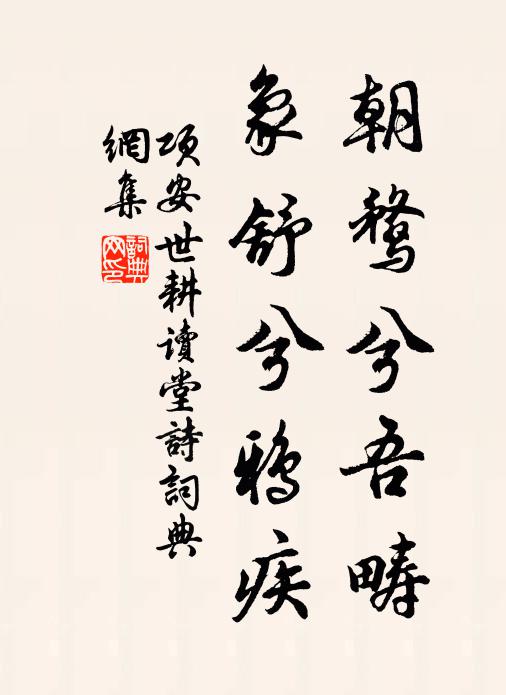 朝鶩兮吾疇
象舒兮鴉疾
項安世耕讀堂詩詞典
網集
詞典網印